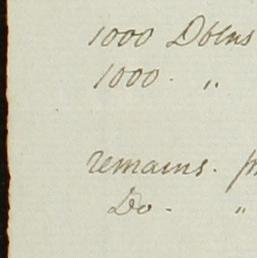 1000 Dblns
1000. "
remains.
Do. "